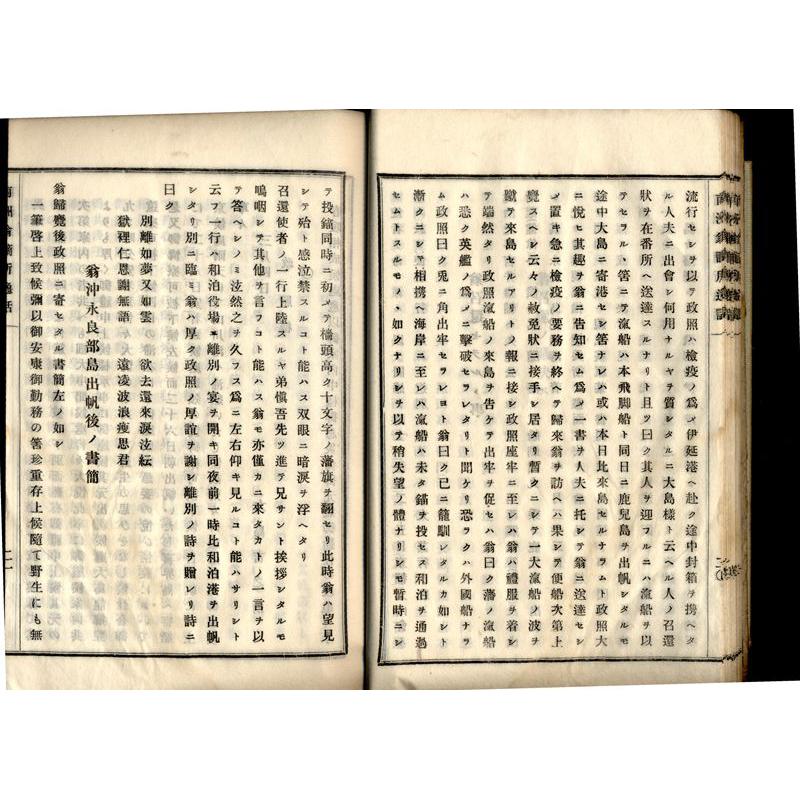 流行セシヲ以テ政照ハ檢疫ノ爲メ伊延港ヘ赴ク途中封箱ヲ携ヘタ
ル人夫ニ出會シ何用ナルヤヲ質シタルニ大島樣ト云ヘル人ノ召還
狀ヲ在番所ヘ送達スルナリト且ツ曰ク其人ヲ迎フルニハ滊船ヲ以
テセラル丶筈ニテ滊船ハ本飛脚船ト同日ニ鹿兒島ヲ出帆シタルモ
途中大島ニ寄港セシ筈ナレハ或ハ本日比來島セルナラムト政照大
ニ悅ヒ其趣ヲ翁ニ告知セム爲メ一書ヲ人夫ニ托シテ翁ニ送達セシ
メ置キ急ニ檢疫ノ要務ヲ終ヘテ歸來翁ヲ訪ヘハ果シテ便船次第上
覺スヘシ云々ノ赦免狀ニ接手シ居タリ暫クニシテ一大滊船ノ波ヲ
蹴テ來島セルアリトノ報ニ接シ政照座牢ニ至レハ翁ハ禮服ヲ着シ
テ端然タリ政照滊船ノ來島ヲ告ケテ出牢ヲ促セハ翁曰ク藩ノ滊船
ハ恐ク英艦ノ爲メニ擊破セラレタリト聞ケリ恐ラクハ外國船ナラ
ム政照曰ク兎ニ角出牢セラレヨト翁曰ク已ニ籠馴レタルカ如シト
漸クニシテ相携ヘ海岸ニ至レハ滊船ハ未タ錨ヲ投セス和泊ヲ通過
セムトスルモノ丶如クナリシヲ以テ稍失望ノ體ナリシモ暫時ニシ
テ投錨同時ニ初メテ檣頭高ク十文字ノ藩旗ヲ翻セリ此時翁ハ望見
シテ殆ト感泣禁スルコト能ハス双眼ニ暗淚ヲ浮ヘタリ
召還使者ノ一行上陸スルヤ弟愼吾先ツ進テ兄サント挨拶シタルモ
嗚咽シテ其他ヲ言フコト能ハス翁モ亦僅カニ來タカトノ一言ヲ以
テ答ヘシノミ泫然之ヲ久フス爲ニ左右仰キ見ルコト能ハサリシト
云フ一行ハ和泊役場ニ離別ノ宴ヲ開キ同夜前一時比和泊港ヲ出帆
シタリ別ニ臨ミ翁ハ厚ク政照ノ厚誼ヲ謝シ離別ノ詩ヲ贈レリ詩ニ
曰ク
別離如夢又如雲　欲去還來淚泫紜
獄裡仁恩謝無語　遠凌波浪瘦思君
翁沖永良部島出帆後ノ書簡
翁歸覺後政照ニ寄セタル書簡左ノ如シ
一筆啓上致候彌以御安康御勤務の筈珍重存上候隨て野生にも無
二一